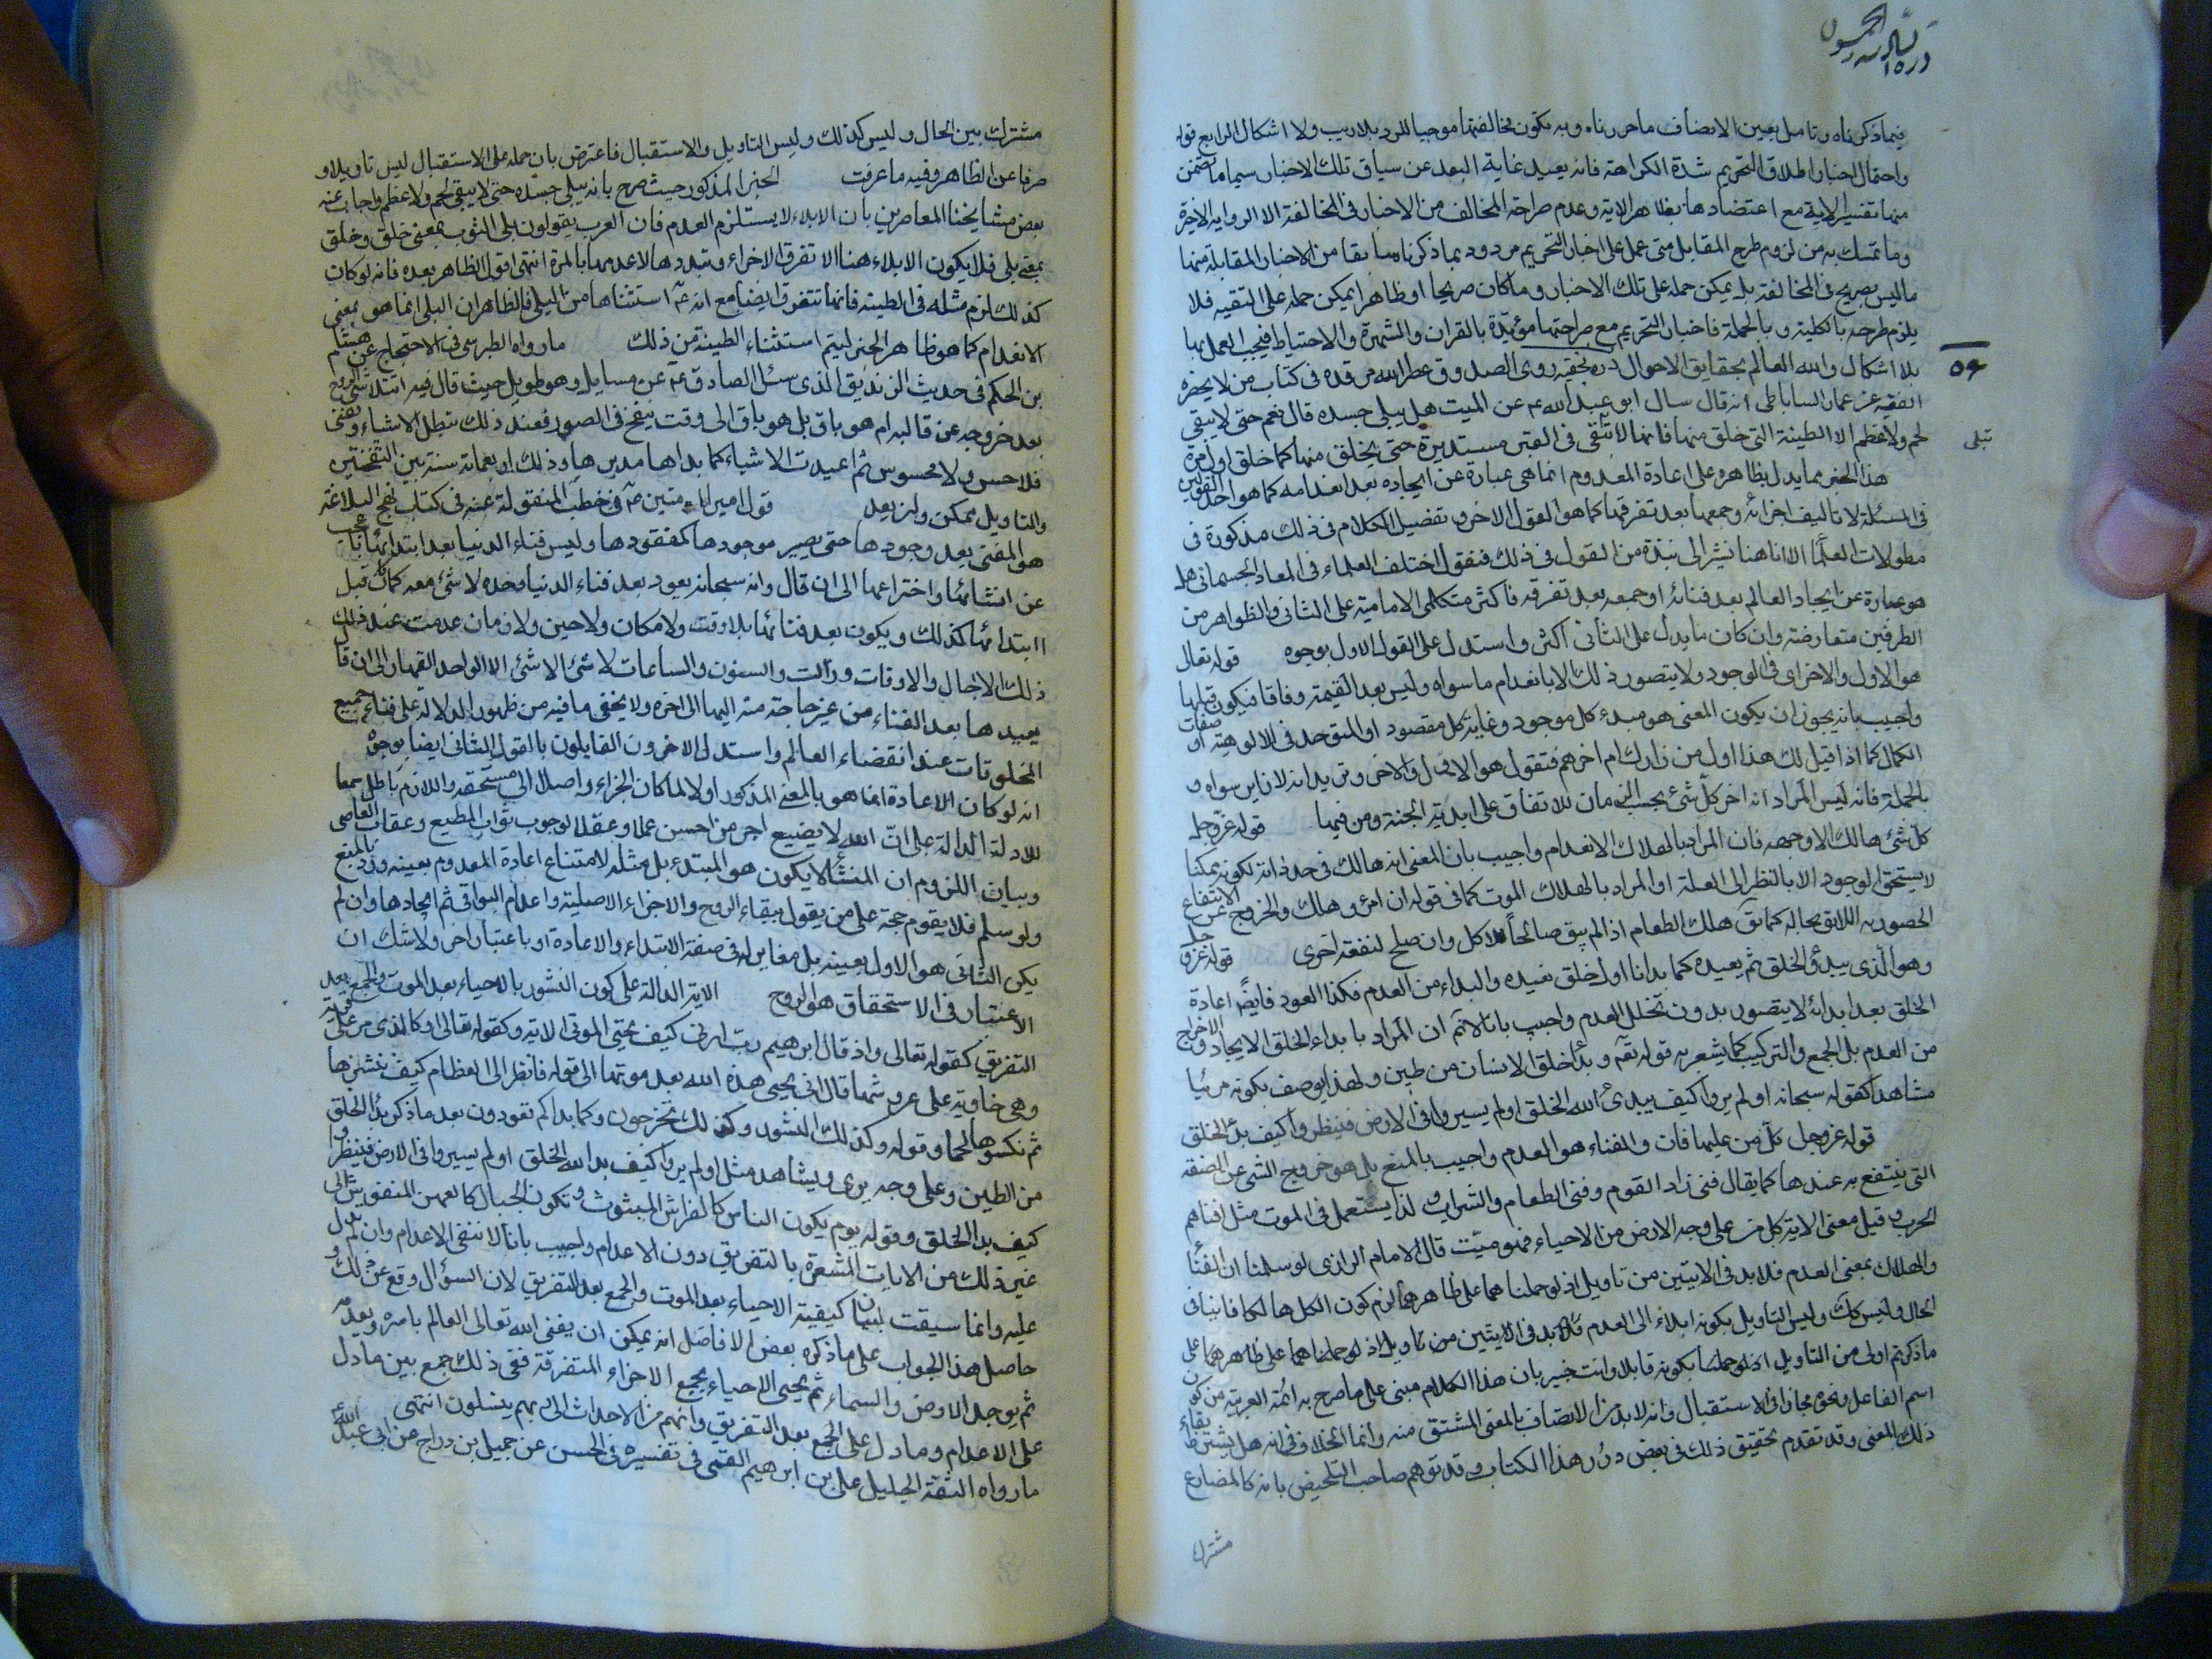 فيما ذكرناه وتامل بعين الانصاف ما حررناه وبه يكون مخالفتها موجبا للرد بلا ريب ولا اشكال الرابع قوله
واحتمال اخبار اطلاق التحريم شدة الكراهة فانه بعيد غاية البعد عن سياق تلك الاخبار سيما ما تضمن
منها تفسير الاية مع اعتضادها بظاهر الاية وعدم صراحة المخالف من الاخبار في المخالفة الا الرواية الاخيرة
وما تمسك به من لزوم طرح المقابل متى عمل على اخبار التحريم مردود بما ذكرناه سابقا من الاخبار المقابلة منها
ما ليس بصريح في المخالفة بل يمكن حمله على تلك الاخبار وما كان صريحا او ظاهرا يمكن حمله على التقيه فلا
يلزم طرحه بالكلية وبالجملة فاخبار التحريم مع صراحتها مؤيدة بالقران والشهرة والاحتياط فيجب العمل بها
بلا اشكال والله العالم بحقايق الاحوال دره نجفيه روى الصدوق عطر الله مرقده في كتاب من لا يحضره
٥٦
الفقيه عن عمار الساباطى انه قال سال ابو عبد الله ع عن الميت هل يبلى جسده قال نعم حتى لا يبقى
لحم ولا عظم الا الطينة التى خلق منها فانها لا تبقى في القبر مستديرة حتى يخلق منها كما خلق اول مرة
تبلى
هذا الخبر مما يدل بظاهره على اعادة المعدوم انما هى عبارة عن ايجاده بعد انعدامه كما هو احد القولين
في المسئلة لا تاليف اجزائه وجمعها بعد تفرقها كما هو القول الاخر وتفصيل الكلام في ذلك مذكورة في
مطولات العلما الا انا هنا نشير الى نبذة من القول في ذلك فنقول اختلف العلماء في المعاد الجسمانى هل
هو عبارة عن ايجاد العالم بعد فنائه او جمعه بعد تفرقه فاكثر متكلمى الامامية على الثانى والظواهر من
الطرفين متعارضة وان كان ما يدل على الثانى اكثر واستدل على القول الاول بوجوه قوله تعال
هو الاول والاخر اى في الوجود ولا يتصور ذلك الا بانعدام ما سواه وليس بعد القيمة وفاقا فيكون قبلها
واجيب بانه يجوز ان يكون المعنى هو مبدء كل موجود وغاية كل مقصود او المتوحد في الالوهية او صفات
الكمال كما اذا قيل لك هذا اول من زارك ام اخرهم فتقول هو الاول والاخر وتريد انه لا زاير سواه و
بالجملة فانه ليس المراد انه اخر كل شئ بحسب الزمان للاتفاق على ابدية الجنة ومن فيها قوله عز وجل
كل شئ هالك الا وجهه فان المراد بالهلاك الانعدام واجيب بان المعنى انه هالك في حد ذاته لكونه ممكنا
لا يستحق الوجود الا بالنظر الى العلة او المراد بالهلاك الموت كما في قوله ان امرؤ هلك والخروج عن الانتفاع
المقصود به اللايق بحاله كما يق هلك الطعام اذا لم يبق صالحا للاكل وان صلح لنفعة اخرى قوله عز وجل
وهو الذى يبدؤ الخلق ثم يعيده كما بدانا اول خلق نعيده والبداء من العدم فكذا العود فايضا اعادة
الخلق بعد ابدائه لا يتصور بدون تخلل العدم واجيب بانا لا نم ان المراد بابداء الخلق الايجاد والاخراج
من العدم بل الجمع والتركيب كما يشعر به قوله تعه وبدأ خلق الانسان من طين ولهذا يوصف بكونه مرئيا
مشاهدا كقوله سبحانه او لم يروا كيف يبدئ الله الخلق او لم يسيروا في الارض فينظروا كيف بدء الخلق
قوله عز وجل كل من عليها فان والفناء هو العدم واجيب بالمنع بل هو خروج الشى عن الصفة
التى ينتفع به عندها كما يقال فنى زاد القوم وفنى الطعام والشراب ولذا يستعمل في الموت مثل افناهم
الحرب وقيل معنى الاية كل من على وجه الارض من الاحياء فهو ميت قال الامام الرازى لو سلمنا ان الفنا
والهلاك بمعنى العدم فلا بد في الايتين من تاويل اذ لو حملنا هما على ظاهرهما لزم كون الكل هالكا فانيا في
الحال وليس كك وليس التاويل بكونه ايلاء الى العدم فلا بد في الايتين من تاويل اذ لو حملنا هما على ظاهرهما على
ما ذكرتم اولى من التاويل بكونه قابلا وانت خبير بان هذا الكلام مبنى على ما صرح به ائمة العربية من كون
اسم الفاعل ونحوه مجازا في الاستقبال وانه لا بد من الاتصاف بالمعنى المشتق منه وانما الخلاف في انه هل يشترط بقاء
ذلك المعنى وقد تقدم تحقيق ذلك في بعض درر هذا الكتاب وقد توهم صاحب التلخيص بانه كالمضارع
مشترك
مشترك بين الحال وليس كذلك وليس التاويل والاستقبال فاعترض بان حمله على الاستقبال ليس تاويلا و
صرفا عن الظاهر وفيه ما عرفت الخبر المذكور حيث صرح بانه يبلى جسده حتى لا يبقى لحم ولا عظم واجاب عنه
بعض مشايخنا المعاصرين بان الابلاء لا يستلزم العدم فان العرب يقولون بلى الثوب بمعنى خلق وخلق
بمعنى بلى فلا يكون الابلاء هنا الا تفرق الاجزاء وتبددها لا عدمها بالمرة انتهى اقول الظاهر بعده فانه لو كان
كذلك لزم مثله في الطينة فانها تتفرق ايضا مع انه ع استثناها من البلى فالظاهر ان البلى انما هو بمعنى
الانعدام كما هو ظاهر الخبر ليتم استثناء الطينة من ذلك ما رواه الطبرسى في الاحتجاج عن هشام
بن الحكم في حديث الزنديق الذى سئل الصادق ع عن مسايل وهو طويل حيث قال فيه اتتلاشى الروح
بعد خروجه عن قالبه ام هو باق بل هو باق الى وقت ينفخ في الصور فعند ذلك تبطل الاشياء وتفنى
فلا حس ولا محسوس ثم اعيدت الاشياء كما بداها مدبرها وذلك اربعمائة سنة بين النفختين
والتاويل ممكن وان بعد قول امير المؤمنين ع في خطبه المنقولة عنه في كتاب نهج البلاغة
هو المفنى بعد وجودها حتى يصير موجودها كمفقودها وليس فناء الدنيا بعد ابتدائها باعجب
عن انشائها واختراعها الى ان قال وانه سبحانه يعود بعد فناء الدنيا وحده لا شئ معه كما كان قبل
ابتدائها كذلك ويكون بعد فنائها بلا وقت ولا مكان ولا حين ولا زمان عدمت عند ذلك
ذلك الاجال والاوقات وزالت والسنون والساعات لا شئ الا شئ الا الواحد القهار الى ان قال
يعيدها بعد الفناء من غير حاجة منه اليها الى اخره ولا يخفى ما فيه من ظهور الدلالة على فناء جميع
المخلوقات عند انقضاء العالم واستدل الاخرون القايلون بالقول الثانى ايضا بوجوه
انه لو كان الاعادة انما هو بالمعنى المذكور اولا لما كان الجزاء واصلا الى مستحقه واللازم باطل سمعا
للادلة الدالة على ان الله لا يضيع اجر من احسن عملا وعقلا لوجوب ثواب المطيع وعقاب العاصى
وبيان اللزوم ان المنشأ لا يكون هو المبتدء بل مثله لامتناع اعادة المعدوم بعينه ورد بالمنع
ولو سلم فلا يقوم حجة على من يقول ببقاء الروح والاجزاء الاصلية واعدام البواقى ثم ايجادها وان لم
يكن الثانى هو الاول بعينه بل مغاير له في صفة الابتداء والاعادة او باعتبار اخر ولا شك ان
الاعتبار في الاستحقاق هو الروح الاية الدالة على كون النشور بالاحياء بعد الموت والجمع بعد
التفريق كقوله تعالى واذ قال ابرهيم رب ارنى كيف تحيى الموتى الاية وكقوله تعالى او كالذى مر على قرية
وهى خاوية على عروشها قال انى يحيى هذه الله بعد موتها الى قوله فانظر الى العظام كيف ننشزها
ثم نكسوها لحما وقوله وكذلك النشور وكذلك تخرجون وكما بداكم تعودون بعد ما ذكر بدا الخلق
من الطين وعلى وجه يرى ويشاهد مثل او لم يروا كيف بدا الله الخلق او لم يسيروا في الارض فينظروا
كيف بدا الخلق وقوله يوم يكون الناس كالفراش المبثوث وتكون الجبال كالعهن المنفوش الى
غير ذلك من الايات المشعرة بالتفريق دون الاعدام واجيب بانا لا ننفى الاعدام وان لم يدل
عليه وانما سيقت لبيان كيفية الاحياء بعد الموت والجمع بعد التفريق لان السؤال وقع عن ذلك و
حاصل هذا الجواب على ما ذكره بعض الافاضل انه يمكن ان يفنى الله تعالى العالم بامره ويعدمه
ثم يوجد الارض والسماء ثم يحيى الاحياء بجمع الاجزاء المتفرقة ففى ذلك جمع بين ما دل
على الاعدام وما دل على الجمع بعد التفريق وانهم من الاجداث الى ربهم ينسلون انتهى
ما رواه الثقة الجليل على بن ابرهيم القمى في تفسيره في الحسن عن جميل بن دراج عن ابى عبد الله